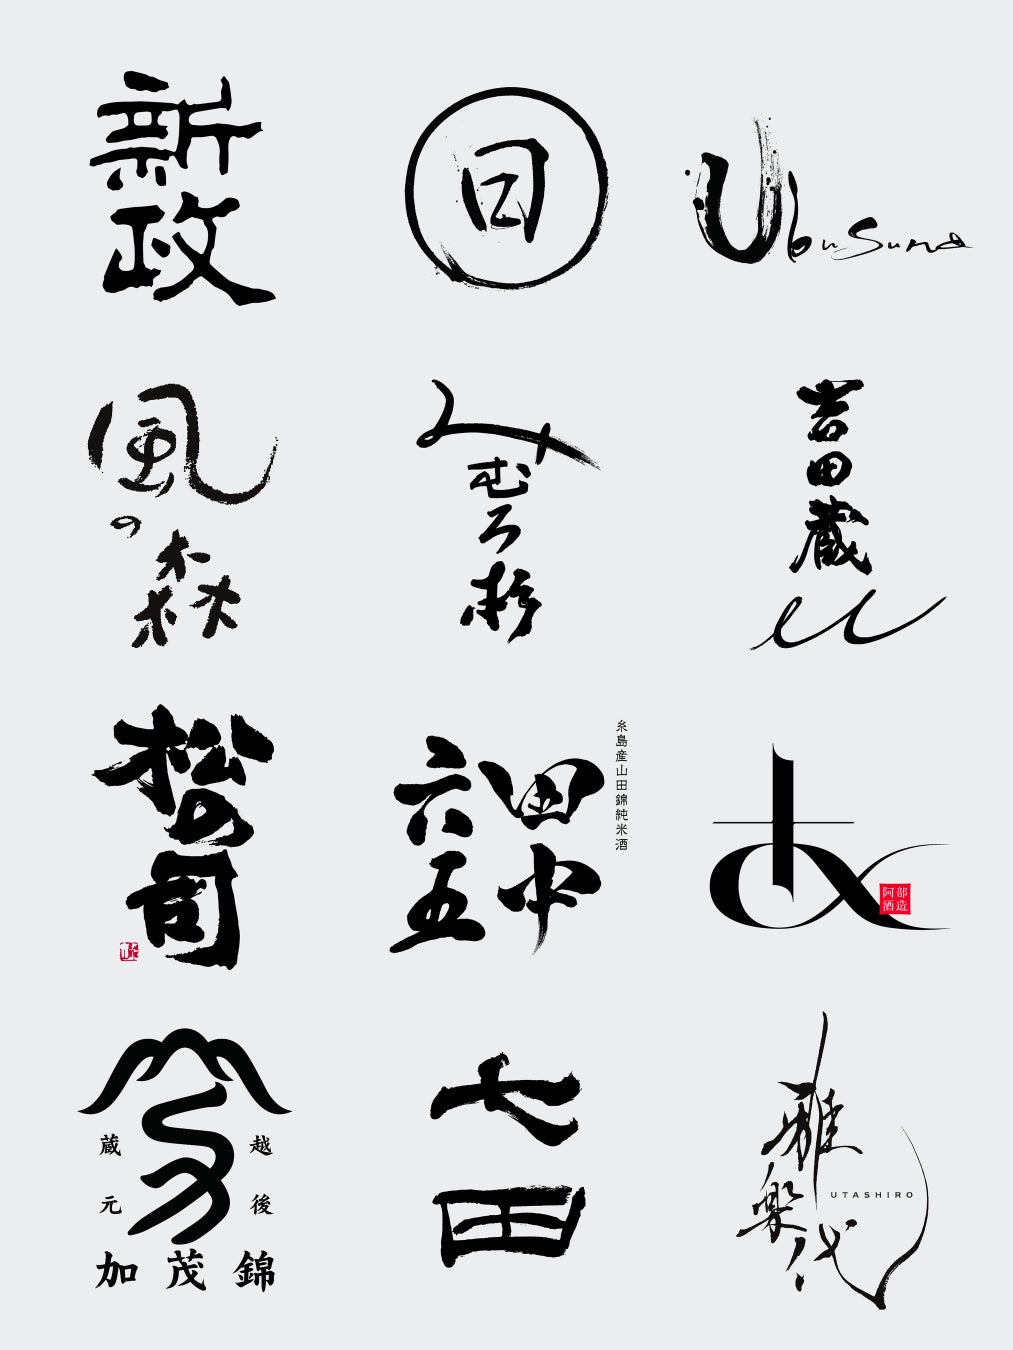 新政
日
Ubusuna
風の森
みむろ杉
吉田蔵u
松の司
田中
六五
糸島産山田錦純米酒
あ
阿部
酒造
越後
蔵元
加茂錦
七田
雅楽代
UTASHIRO